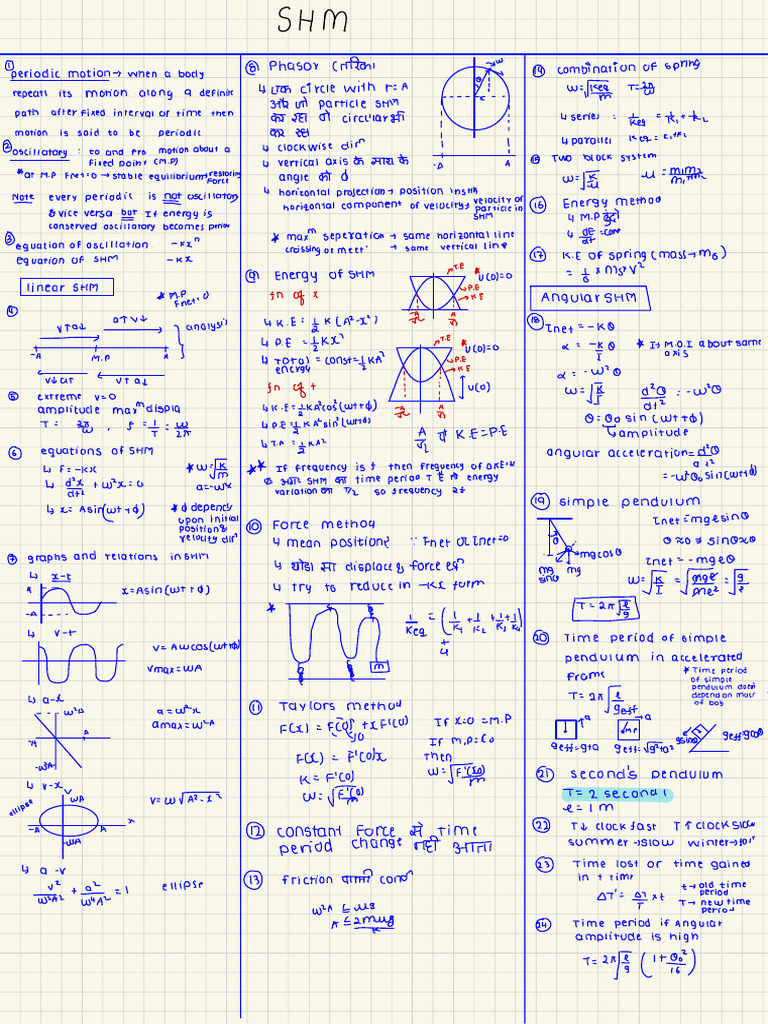 SHM
① periodic motion → when a body
repeats its motion along a definite
path after fixed interval of time then
motion is said to be periodic
② oscillatory : to and fro motion about a
fixed point (M.P)
* at M.P Fnet=0 → stable equilibrium → restoring force
Note every periodic is not oscillatory
& vice versa but If energy is
conserved oscillatory becomes periodic
③ equation of oscillation -kxⁿ
equation of SHM -kx
linear SHM
* M.P Fnet=0
④
v↑a↓ a↑v↓
-A M.P A
v↓a↑ v↑a↓
analysis
⑤ extreme v=0
amplitude maxᵐ displa
T = 2π/ω , f = 1/T = ω/2π
⑥ equations of SHM
↳ F=-kx
↳ d²x/dt² + ω²x=0
↳ x= Asin(ωt+ϕ)
* ω=√(k/m)
a=-ω²x
* ϕ depends
upon initial
position &
velocity dirⁿ
⑦ graphs and relations in SHM
↳ x-t
A
-A
x=Asin(ωt+ϕ)
↳ v-t
v= Aωcos(ωt+ϕ)
vmax=ωA
↳ a-x
ω²A
-A A
-ωA
a=ω²x
amax=ω²A
↳ v-x
ellipse
v
ωA
-A A x
-ωA
v=ω√(A²-x²)
↳ a-v
v²/ω²A² + a²/ω⁴A² = 1 ellipse
⑧ Phasor तरिका
↳ एक circle with r=A
और जो particle SHM
कर रहा वो circular भी
कर रहा
↳ clockwise dirⁿ
↳ vertical axis के साथ के
angle को ϕ
↳ horizontal projection → position in SHM
horizontal component of velocity → velocity of particle in SHM
* maxᵐ seperation → same horizontal line
crossing or meet → same vertical line
ω
-A A
⑨ Energy of SHM
fn of x
↳ K.E=½K(A²-x²)
↳ P.E=½Kx²
↳ Total energy = const=½KA²
fn of t
↳ K.E=½KA²cos²(ωt+ϕ)
↳ P.E=½KA²sin²(ωt+ϕ)
↳ T.A=½KA²
T.E
P.E
K.E
* U(0)=0
-A/√2 A/√2
T.E
P.E
K.E
* U(0)=0
U(0)
-A/√2 A/√2
A/√2 पे K.E=P.E
** If frequency is f then frequency of
SHM का time period T है तो energy
variation का T/2 so frequency 2f
⑩ Force method
↳ mean position ढूंढो ∵ Fnet or τnet=0
↳ थोडा सा displace & force
↳ try to reduce in -Kx form
*
m
1/Keq = (1/K1 + 1/K2 + 1/K3 + 1/K4)
4
⑪ Taylors method
F(x) = F(0) + xF'(0)
0
F(x) = F'(0)x
K = F'(0)
ω=√(F'(0)/m)
If x=0 = M.P
If M.P=x0
Then
ω=√(F'(x0)/m)
⑫ constant Force से Time
period change नही आता
⑬ friction वाली condⁿ
ω²A ≤ μg
A ≤ 2mμg/k
⑭ combination of spring
ω=√(Keq/m) T=2π/ω
↳ series : 1/Keq = 1/K1 + 1/K2
↳ parallel Keq=K1+K2
⑮ Two block system
ω=√(K/μ) μ = m1m2/m1+m2
⑯ Energy method
↳ M.P ढूंढो
↳ dE/dt = const
⑰ K.E of spring (mass → ms)
= 1/6 × msv²
Angular SHM
⑱ τnet=-Kθ
α = -Kθ/I
α = -ω²θ
ω=√(K/I) d²θ/dt² = -ω²θ
* I is M.O.I about same axis
θ=θ0 sin(ωt+ϕ)
↳ amplitude
angular acceleration = d²θ/dt²
=-ω²θ0 sin(ωt+ϕ)
⑲ simple pendulum
θ
mg sinθ mg mgcosθ
τnet=mgℓsinθ
θ≈0 ⇒ sinθ≈θ
τnet=-mgℓθ
ω=√(K/I) = √(mgℓ/mℓ²) = √(g/ℓ)
T=2π√(ℓ/g)
⑳ Time period of simple
pendulum in accelerated
Frame
T=2π√(ℓ/geff)
* Time period
of simple
pendulum doesn't
depend on mass
of bob
a a
geff=g+a geff=√(g²+a²) gsinθ geff=gcosθ
㉑ second's pendulum
T=2 second
ℓ=1m
㉒ T↓ clock fast T↑ clock slow
summer→slow winter→fast
㉓ Time lost or time gained
in t time
ΔT'=ΔT/T × t
t→old time period
T→new time period
㉔ Time period if Angular
amplitude is high
T=2π√(ℓ/g) (1+θ0²/16)